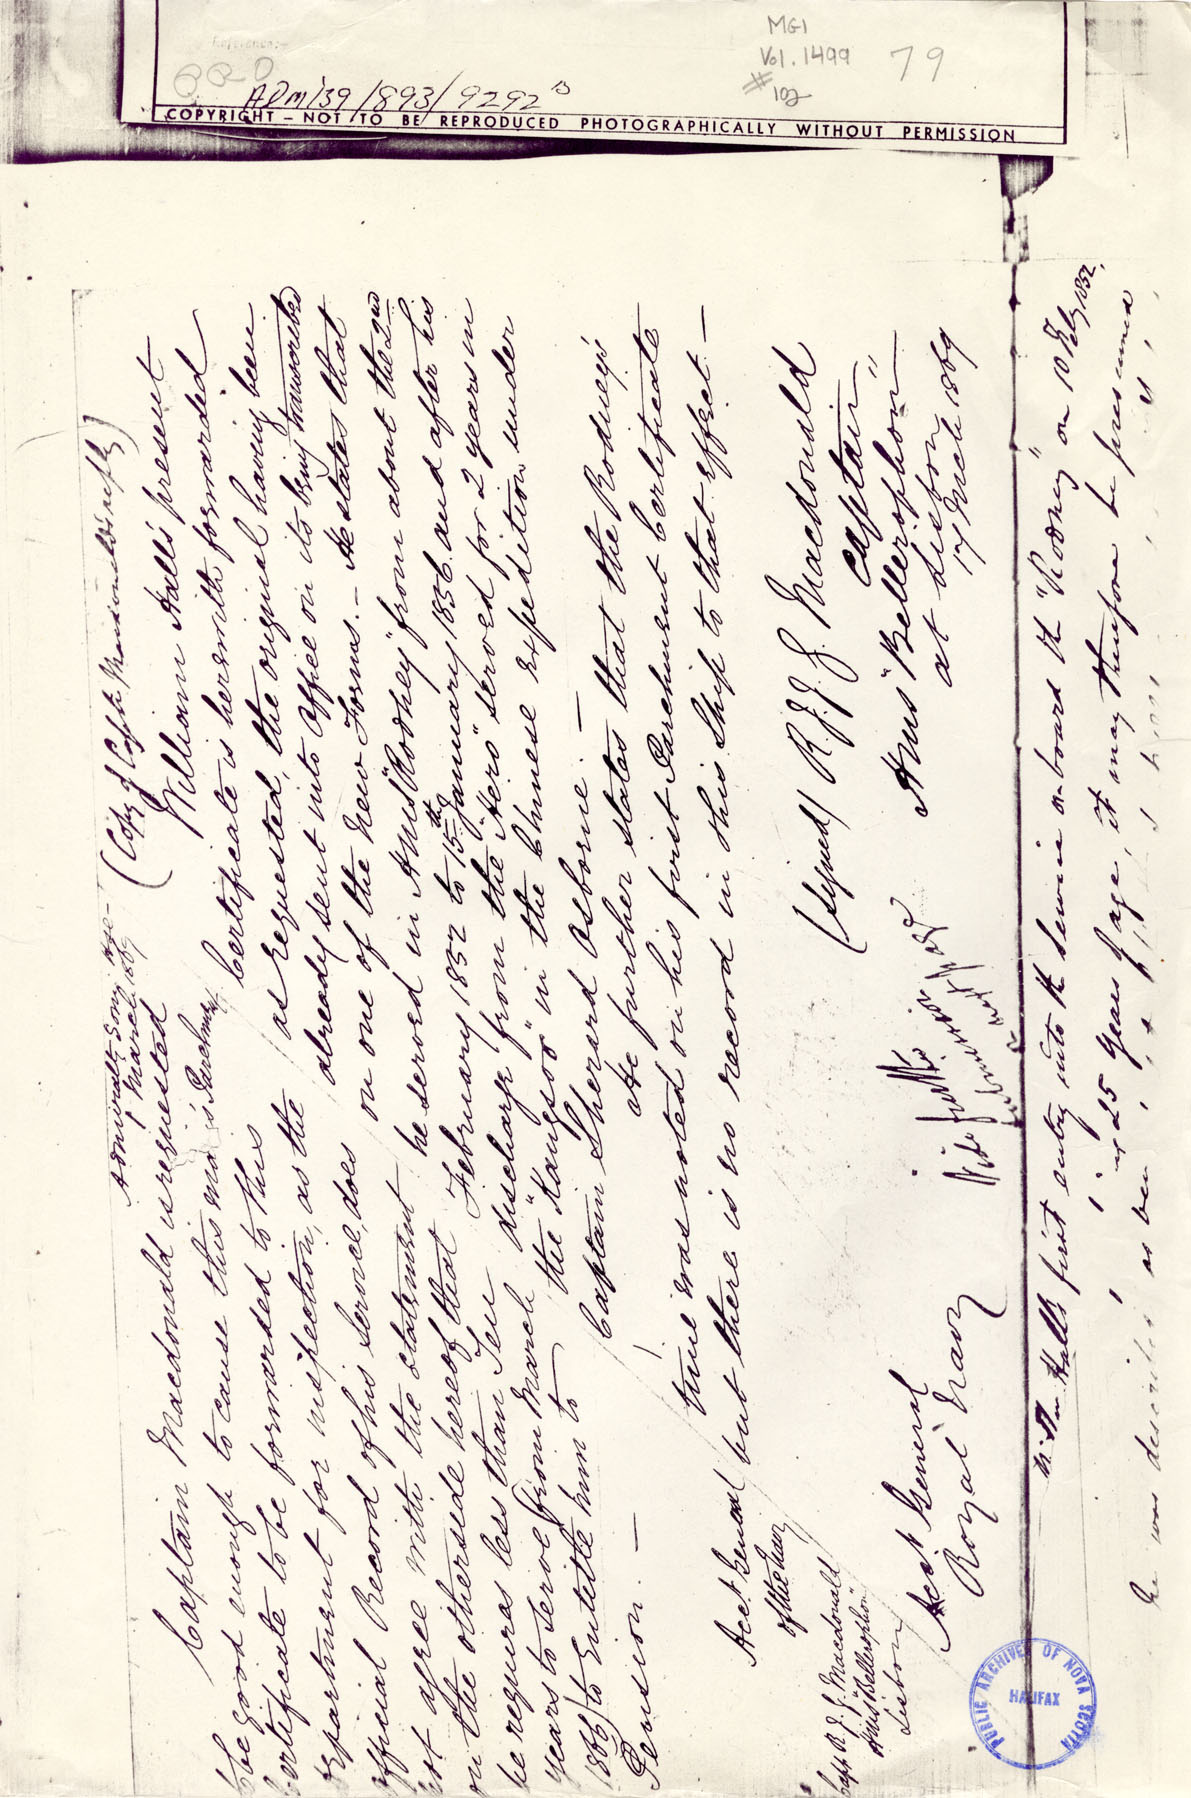 Reference:-
PRO
ADM 139/893/9292 B
MG1
Vol. 1499
# 102
79
COPYRIGHT – NOT TO BE REPRODUCED PHOTOGRAPHICALLY WITHOUT PERMISSION
Admiralty
March 1869
Captain Macdonald is requested
to be good enough to cause this man's Parchment
Certificate to be forwarded to this
Department for inspection, as the
official Record of his Service, does
not agree with the statement
on the otherside hereof that
he requires less than Ten
years to serve (from March
1866) to Entitle him to
Pension. —
Acct General
of the Navy
Capt R. J. J. Macdonald
HMS "Bellerophon"
Lisbon
(Copy of Captn Macdonald's reply)
William Hall's present
Certificate is herewith forwarded
as requested, the original having been
already sent into Office on its being transcribed
on one of the New Forms. — He states that
he served in HMS "Rodney" from about the 2nd
February 1852 to 15th January 1856 and after his
discharge from the "Hero" served for 2 years in
the "Kangsoo" in the Chinese Expedition under
Captain Sherard Osborne. —
He further states that the Rodney's
time was noted on his first Parchment Certificate
but there is no record in this Ship to that effect —
(signed) R. J. J. Macdonald
Captain
HMS "Bellerophon"
at Lisbon
17 March 1869
Acct General
Royal Navy
Wm Hall's first entry into the Service on board the "Rodney" on 10 Feby 1852,
25 years of age, it may therefore be presumed
he was described as
PUBLIC ARCHIVES OF NOVA SCOTIA
HALIFAX